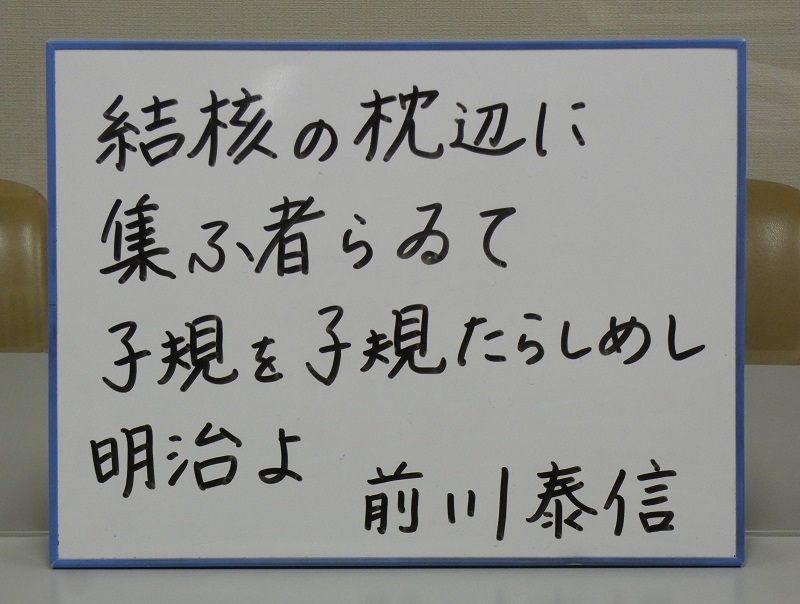 結核の枕辺に
集ふ者らゐて
子規を子規たらしめし
明治よ
前川泰信